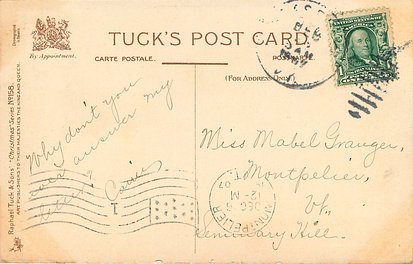 TUCK'S POST CARD.
CARTE POSTALE.
POSTKARTE.
(FOR ADDRESS ONLY.)
By Appointment.
Raphael Tuck & Sons' "Christmas" Series No 158.
ART PUBLISHERS TO THEIR MAJESTIES THE KING AND QUEEN.
Why don't you
ever answer my
letters?
Miss Mabel Granger,
Montpelier,
Vt.
Seminary Hill.
MONTPELIER
DEC
12-M
07